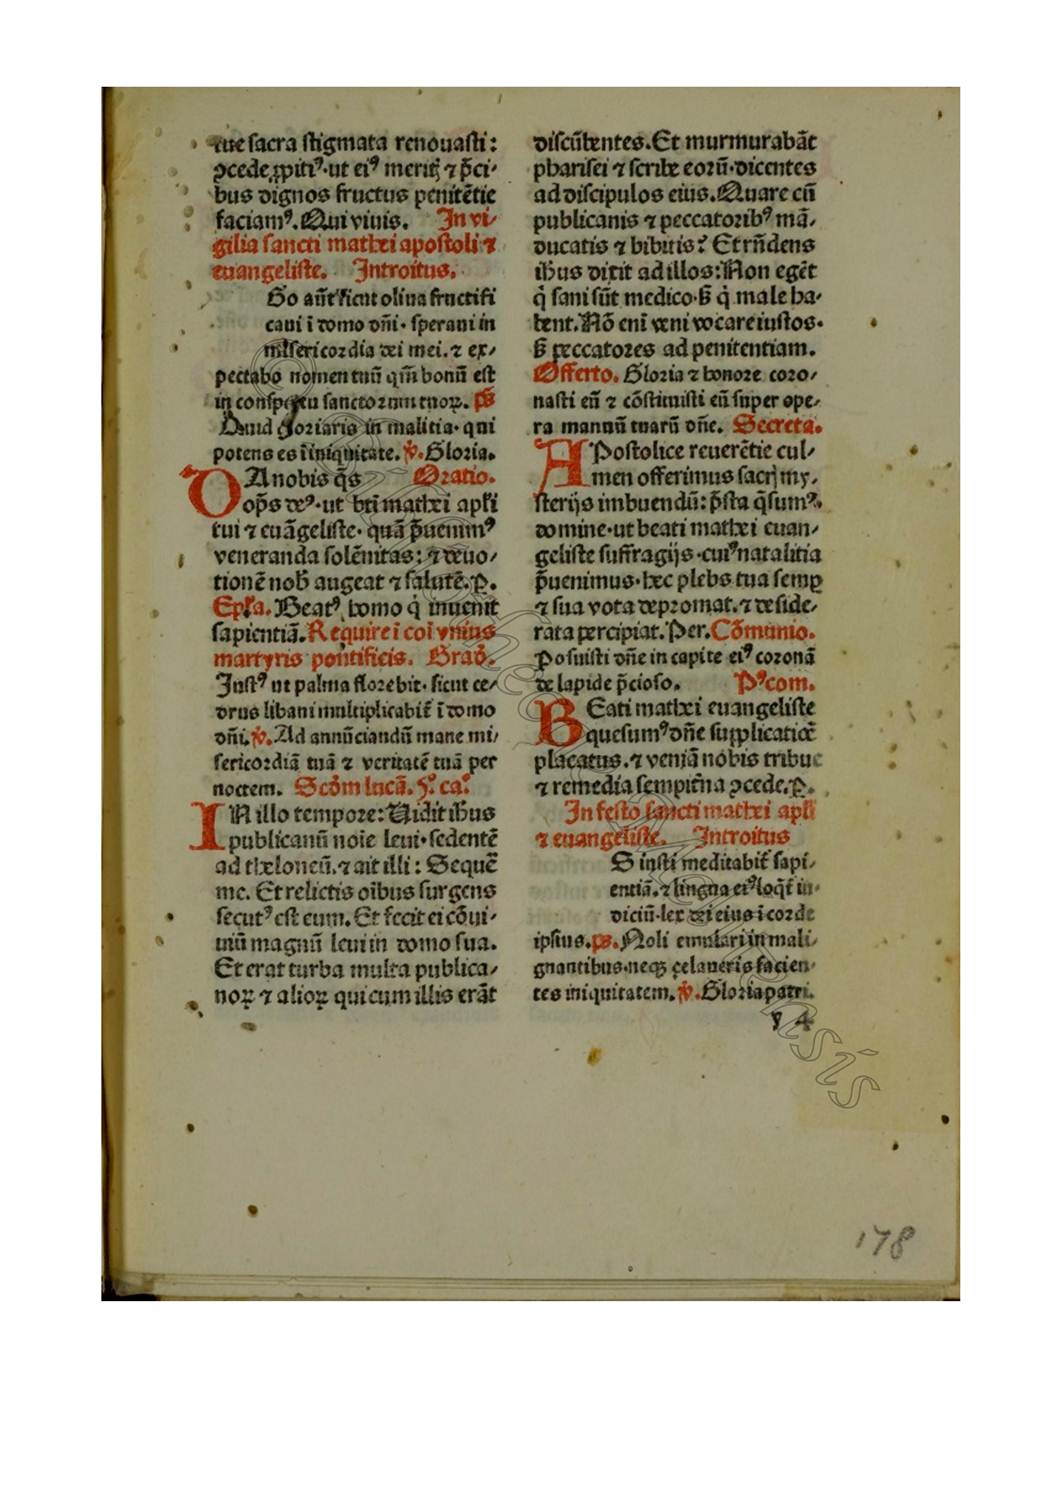 tue sacra stigmata renouasti:
ꝯcede ꝓpitiꝰ·ut eiꝰ meritꝭ ⁊ p̄ci·
bus dignos fructus penitētie
faciamꝰ. Qui viuis. In vi⸗
gilia sancti mathei apostoli ⁊
euangeliste. Introitus.
Go aūt sicut oliua fructifi
caui ī domo dn̄i· speraui in
misericordia dei mei. ⁊ ex⸗
pectabo nomen tuū qm̄ bonū est
in conspectu sanctorum tuoꝝ. ps
Quid gloriaris in malitia· qui
potens es ī iniquitate. ꝟ. Gloria.
DA nobis q̄s Oratio.
op̄s deꝰ·ut bt̄i mathei apl̄i
tui ⁊ euāgeliste· quā p̄uenimꝰ
veneranda solēnitas: ⁊ deuo⸗
tionē nob̄ augeat ⁊ salutē. P.
Ep̄la. Beatꝰ homo q̇ inuenit
sapientiā. Require ī coī vnius
martyris pontificis. Grad̄.
Justꝰ ut palma florebit· sicut ce⸗
drus libani multiplicabit̄ ī domo
dn̄i. ꝟ. Ad annūciandū mane mi⸗
sericordiā tuā ⁊ veritatē tuā per
noctem. Scd̄m lucā. 5º. caº.
IN illo tempore: Vidit ih̄us
publicanū noīe leui· sedentē
ad theloneū. ⁊ ait illi: Sequē
me. Et relictis oībus surgens
secutꝰ est eum. Et fecit ei cōui⸗
uiū magnū leui in domo sua.
Et erat turba multa publica⸗
noꝝ ⁊ alioꝝ qui cum illis erāt
discūbentes. Et murmurabāt
pharisei ⁊ scribe eorū·dicentes
ad discipulos eius. Quare cū
publicanis ⁊ peccatoribꝰ mā⸗
ducatis ⁊ bibitis? Et rn̄dens
ih̄us dixit ad illos: Non egēt
q̇ sani sūt medico· s̄ q̇ male ha⸗
bent. Nō enī veni vocare iustos·
s̄ peccatores ad penitentiam.
Offerto. Gloria ⁊ honore coro⸗
nasti eū ⁊ cōstituisti eū super ope⸗
ra manuū tuarū dn̄e. Secreta.
APostolice reuerētie cul⸗
men offerimus sacrꝭ my⸗
sterijs imbuendū: p̄sta q̄sumꝰ.
domine·ut beati mathei euan⸗
geliste suffragijs·cuiꝰ natalitia
p̄uenimus·hec plebs tua semꝑ
⁊ sua vota depromat. ⁊ deside⸗
rata percipiat. Per. Cōmunio.
Posuisti dn̄e in capite eiꝰ coronā
de lapide p̄cioso. Pꝰcom.
BEati mathei euangeliste
quesumꝰ dn̄e supplicatiōe
placatus. ⁊ veniā nobis tribue
⁊ remedia sempit̄na ꝯcede. P.
In festo sancti mathei apl̄i
⁊ euangeliste. Introitus
S iusti meditabit̄ sapi⸗
entiā. ⁊ lingua eiꝰ loqt̄ iu⸗
diciū· lex dei eius ī corde
ipsius. ps. Noli emulari in mali⸗
gnantibus·neqꝫ zelaueris facien⸗
tes iniquitatem. ꝟ. Gloria patri.
y 4
178
Bibliotheca